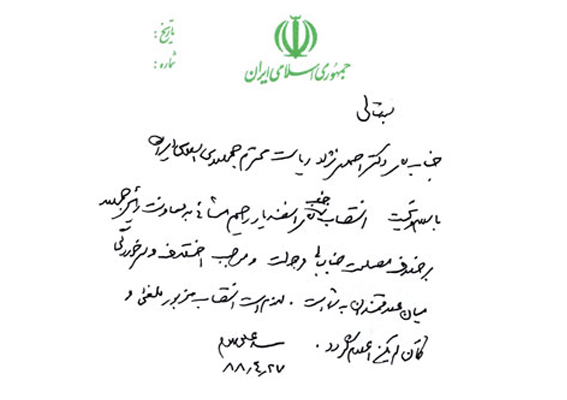 تاریخ :
شماره :
جمهوری اسلامی ایران
بسمه تعالی
جناب آقای دکتر احمدی نژاد ریاست محترم جمهوری اسلامی ایران
با سلام و تحیت انتصاب جناب آقای اسفندیار رحیم مشائی به معاونت رئیس جمهور
بر خلاف مصلحت جنابعالی و دولت و موجب اختلاف و سرخوردگی
میان علاقمندان به شما است . لازم است انتصاب مزبور ملغی و
کان لم یکن اعلام گردد .
سید علی
۸۸٫۴٫۲۷